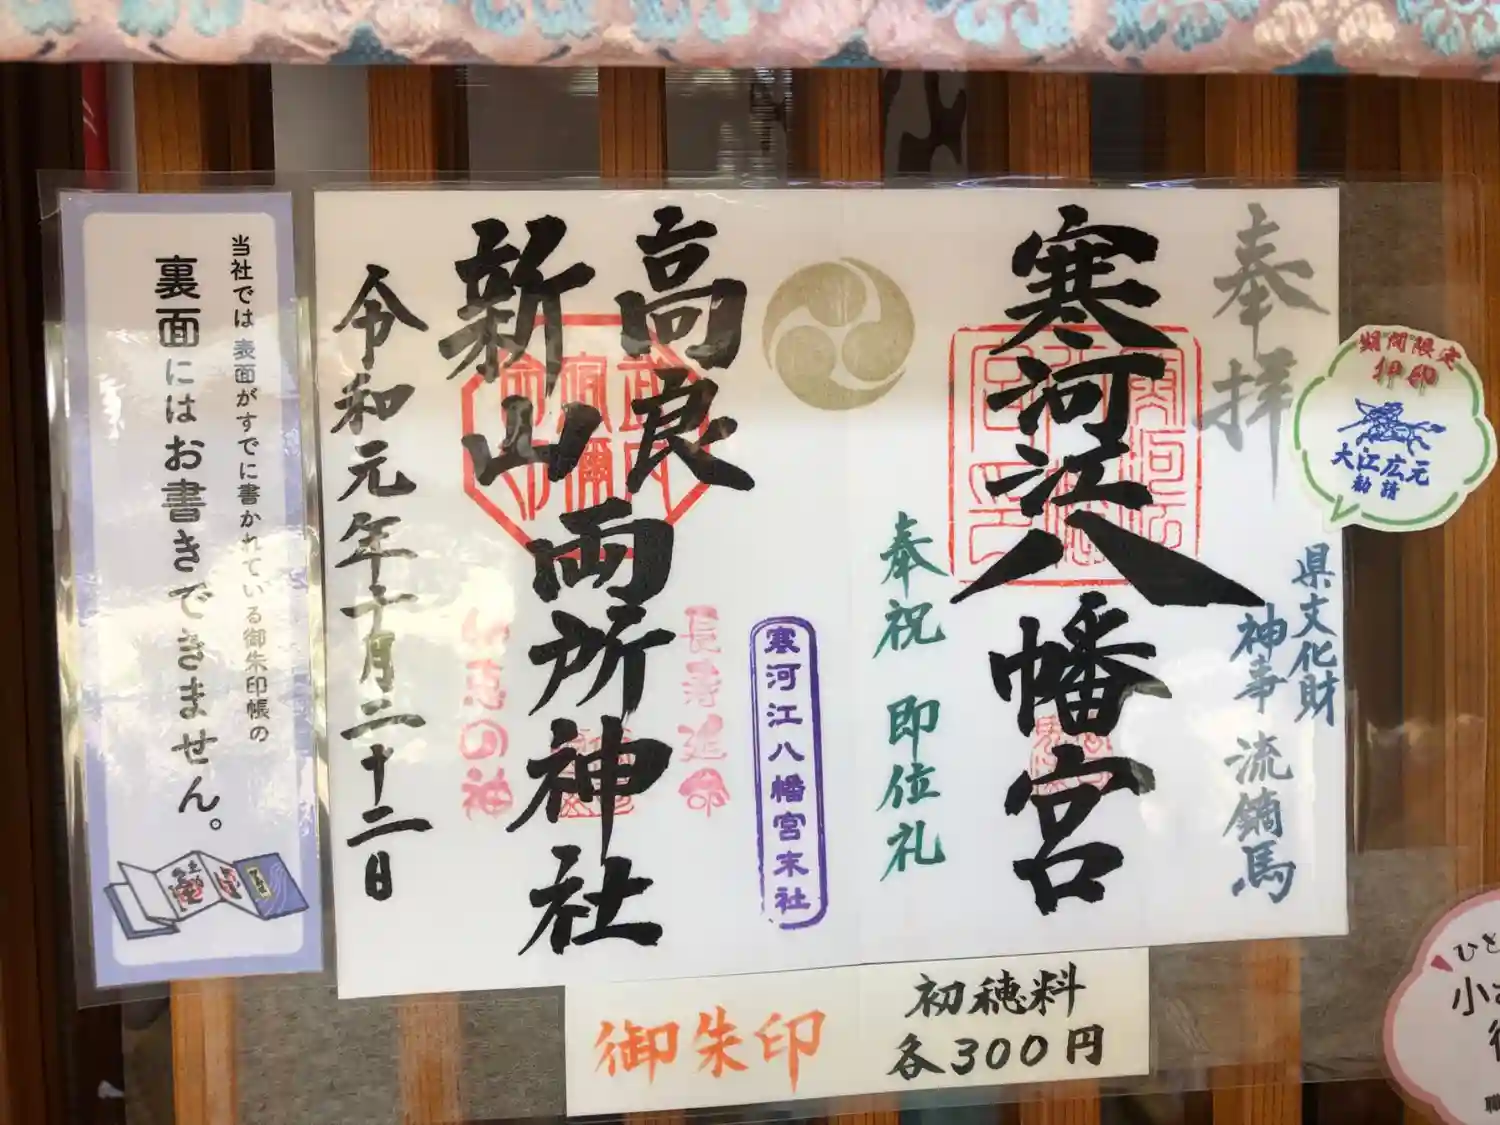 奉拝
寒河江八幡宮
県文化財
神事 流鏑馬
奉祝 即位礼
期間限定
押印
大江広元
勧請
寒河江八幡宮末社
高良
新山
両所神社
長寿延命
知恵の神
令和元年十月二十二日
当社では表面がすでに書かれている御朱印帳の
裏面にはお書きできません。
御朱印
初穂料
各300円
ひと
小